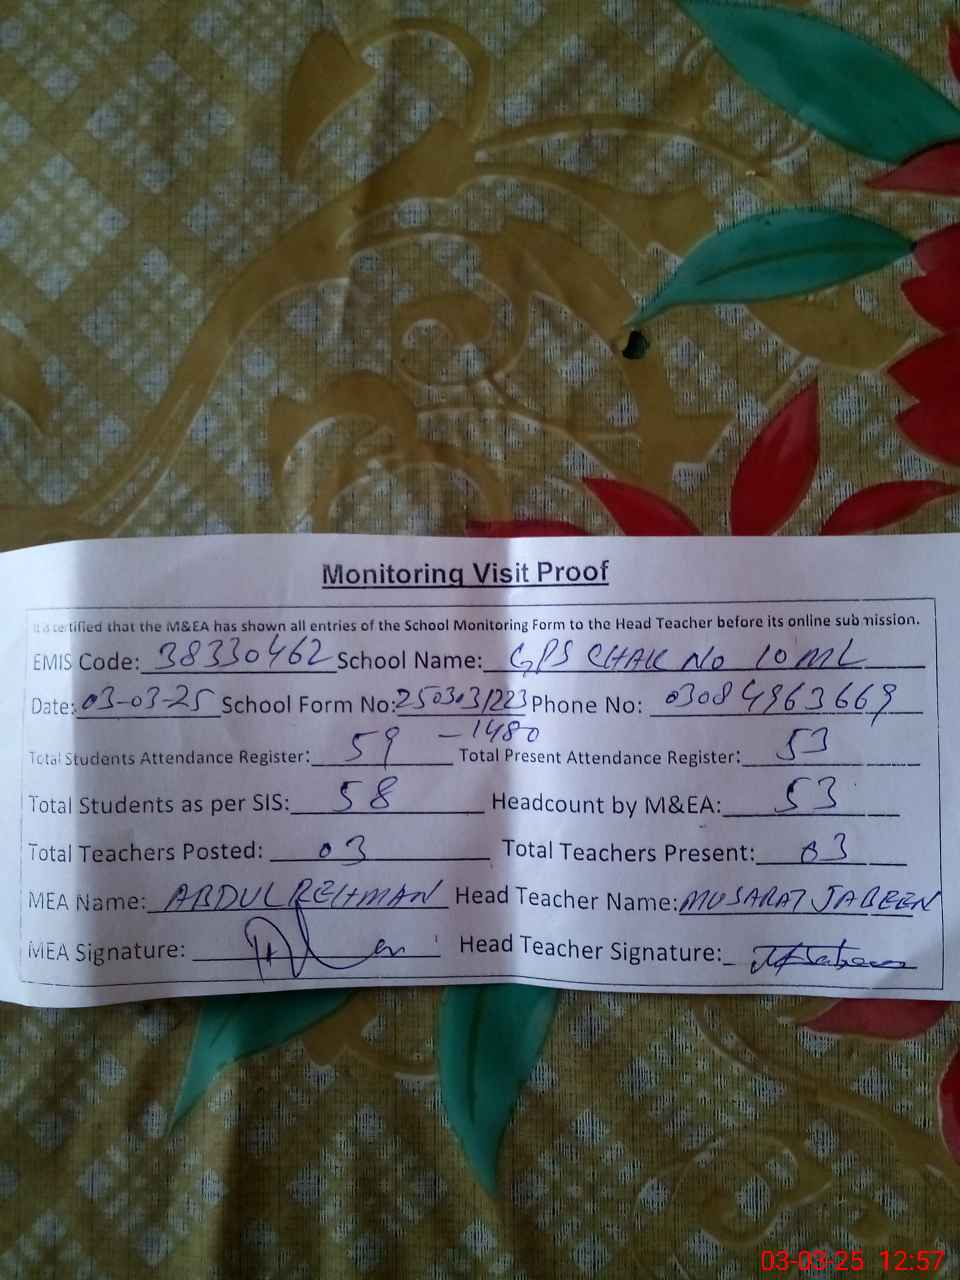 Monitoring Visit Proof
It is certified that the M&EA has shown all entries of the School Monitoring Form to the Head Teacher before its online submission.
EMIS Code: 38330462 School Name: GPS CHAK No 10 ML
Date: 03-03-25 School Form No: 250303/223 Phone No: 03084963669
-1480
Total Students Attendance Register: 59 Total Present Attendance Register: 53
Total Students as per SIS: 58 Headcount by M&EA: 53
Total Teachers Posted: 03 Total Teachers Present: 03
MEA Name: ABDUL REHMAN Head Teacher Name: MUSARAT JABEEN
MEA Signature: Head Teacher Signature:
03-03-25 12:57